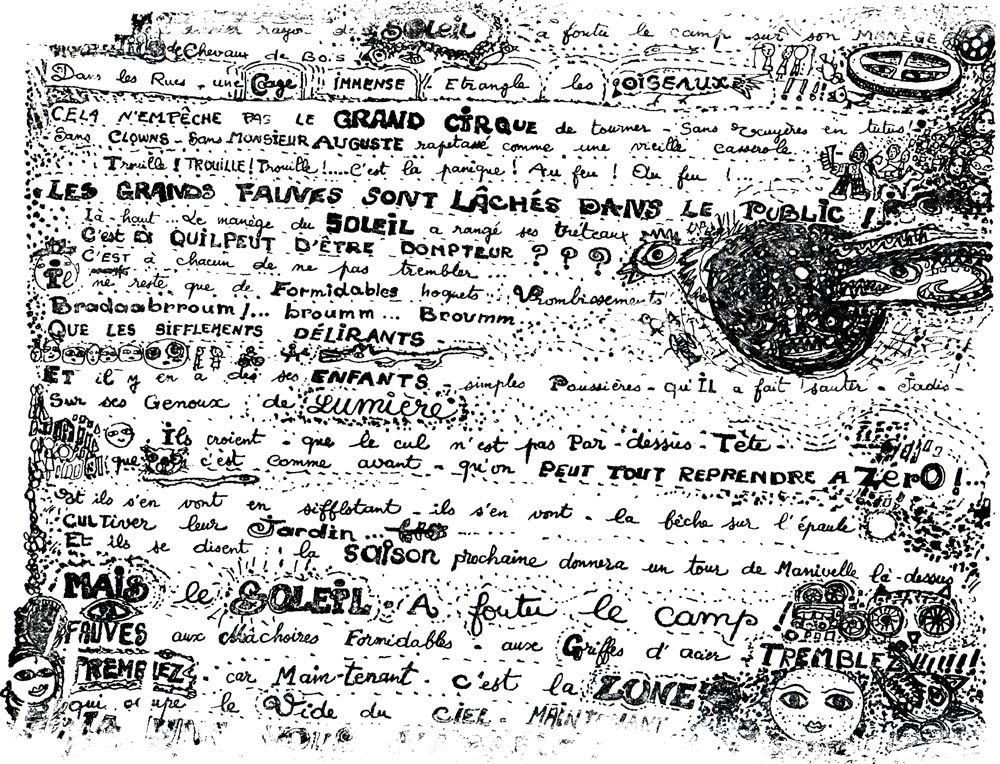 rayon de SOLEIL - a foutu le camp sur son MANÈGE
de Chevaux de Bois
Dans les Rues, une Cage IMMENSE Etrangle les OISEAUX
CELA N'EMPÊCHE PAS LE GRAND CIRQUE de tourner - Sans Ecuyères en tutus
Sans CLOWNS - Sans MONSIEUR AUGUSTE rapetassé comme une vieille casserole...
Trouille ! TROUILLE ! Trouille !.....C'est la panique ! Au feu ! Au feu !...
LES GRANDS FAUVES SONT LÂCHÉS DANS LE PUBLIC !
Là-haut... Le manège du SOLEIL a rangé ses tréteaux
C'est à QUIL PEUT D'ÊTRE DOMPTEUR ? ? ?
C'EST à chacun de ne pas trembler...
Il ne reste que de Formidables hoquets : Vrombissements
Bradaabrroum !... broumm... Broumm...
QUE LES SIFFLEMENTS DÉLIRANTS -
ET il y en a de ses ENFANTS - simples Poussières - qu'IL a fait sauter - Jadis -
Sur ses Genoux de Lumière
Ils croient - que le cul n'est pas Par-dessus-Tête -
que c'est comme avant - qu'on PEUT TOUT REPRENDRE A ZérO !...
Et ils s'en vont en sifflotant - ils s'en vont - la bêche sur l'épaule
CULTiver leur Jardin...
Et ils se disent : la SAISON prochaine donnera un tour de Manivelle là-dessus
MAIS le SOLEIL A foutu le camp !
FAUVES aux Mâchoires Formidables - aux Griffes d'acier - TREMBLEZ !!!!!!
TREMBLEZ - car Main-tenant - c'est la LUNE
qui occupe le Vide du CIEL - MAINTENANT
LA